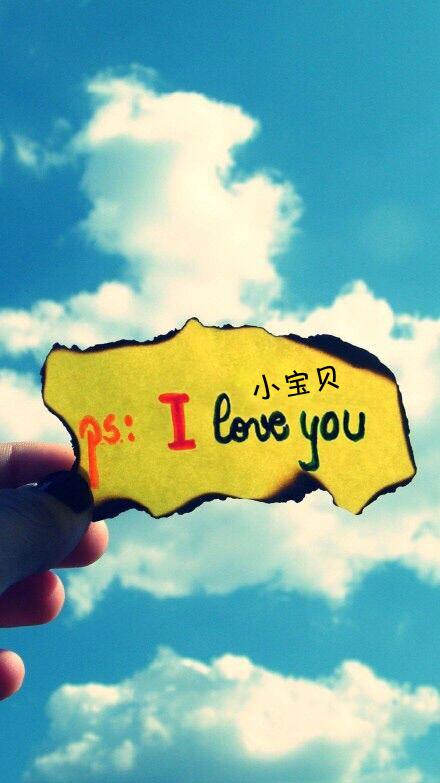 小宝贝
ps: I love you